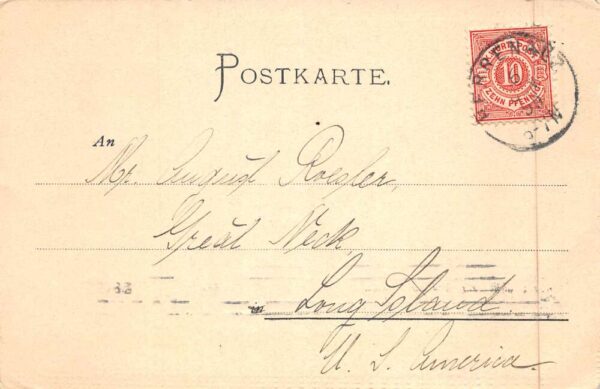 POSTKARTE.
10
ZEHN PFENNIG
HERRENALB
An
Mr. August Roesler,
Great Neck,
in Long Island
U. S. America.